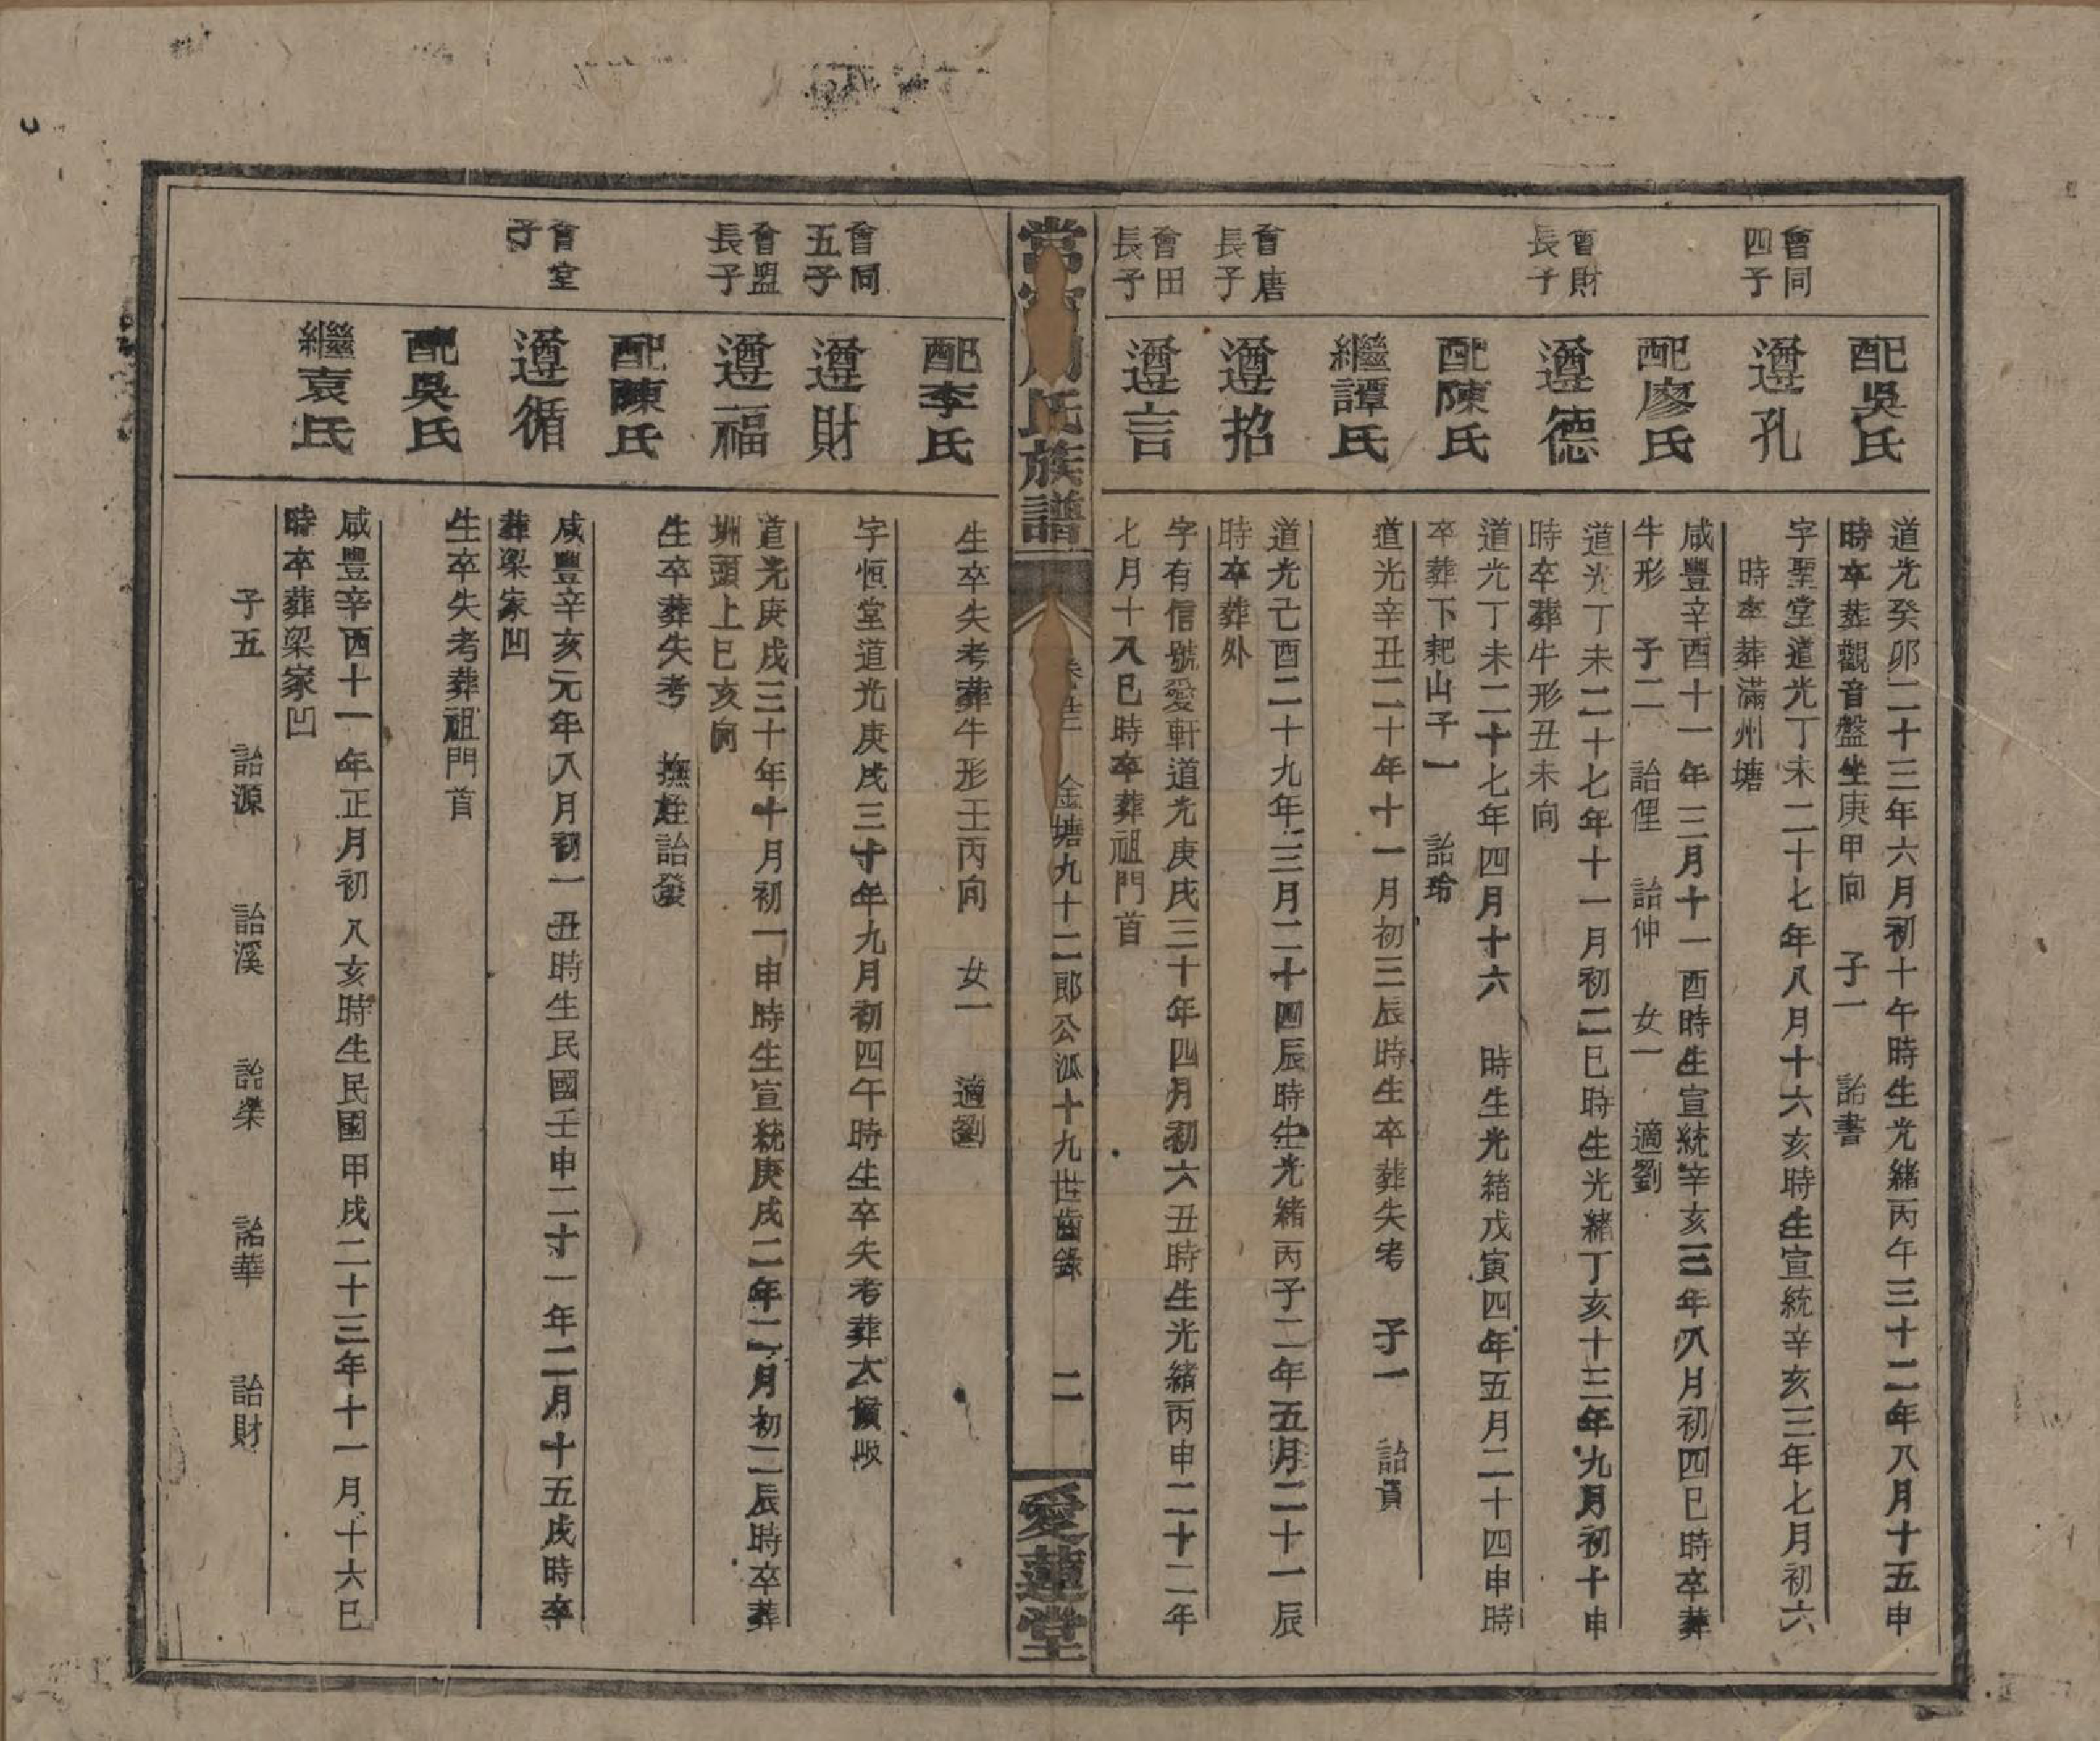 配吳氏
道光癸卯二十三年六月初十午時生光緒丙午三十二年八月十五申
時卒葬觀音盤坐庚甲向 子一 詒書
會同四子
遵孔
字聖堂道光丁未二十七年八月十六亥時生宣統辛亥三年七月初六
時卒葬滿州塘
配廖氏
咸豐辛酉十一年三月十一酉時生宣統辛亥三年八月初四巳時卒葬
牛形 子二 詒俚 詒仲 女一 適劉
會財長子
遵德
道光丁未二十七年十一月初二巳時生光緒丁亥十三年九月初十申
時卒葬牛形丑未向
配陳氏
道光丁未二十七年四月十六 時生光緒戊寅四年五月二十四申時
卒葬下耙山子一 詒珍
繼譚氏
道光辛丑二十年十一月初三辰時生卒葬失考 子一 詒貢
會唐長子
遵招
道光己酉二十九年三月二十四辰時生光緒丙子二年五月二十一辰
時卒葬外
會田長子
遵言
字有信號愛軒道光庚戌三十年四月初六丑時生光緒丙申二十二年
七月十八巳時卒葬祖門首
常 周氏族譜
卷 金塘九十二郎公派十九世齒錄
二
愛蓮堂
配李氏
生卒失考葬牛形壬丙向 女一 適劉
會同五子
遵財
字恒堂道光庚戌三十年九月初四午時生卒失考葬大 墈
會盟長子
遵福
道光庚戌三十年十月初一申時生宣統庚戌二年二月初二辰時卒葬
洲頭上巳亥向
配陳氏
生卒葬失考 撫姪詒發
會堂子
遵循
咸豐辛亥元年八月初一丑時生民國壬申二十一年二月十五戌時卒
葬梁家凹
配吳氏
生卒失考葬祖門首
繼袁氏
咸豐辛酉十一年正月初八亥時生民國甲戌二十三年十一月十六巳
時卒葬梁家凹
子五 詒源 詒溪 詒榮 詒華 詒財